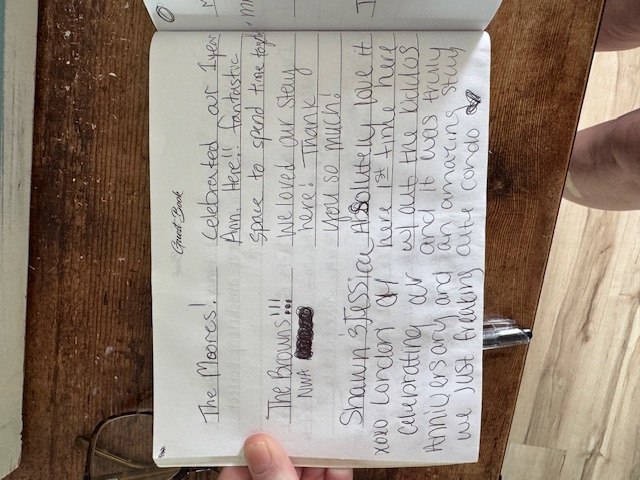 Guest Book
The Moores! Celebrated our 1 year
Ann. Here!! Fantastic
space to spend time together
The Browns!!! We loved our stay
NWA here! Thank
you so much!
Shawn & Jessica Absolutely love it
xoxo London here 1st time here
celebrating our w/out the kiddos
Anniversary and and it was truly
we just freaking an amazing stay
cute condo